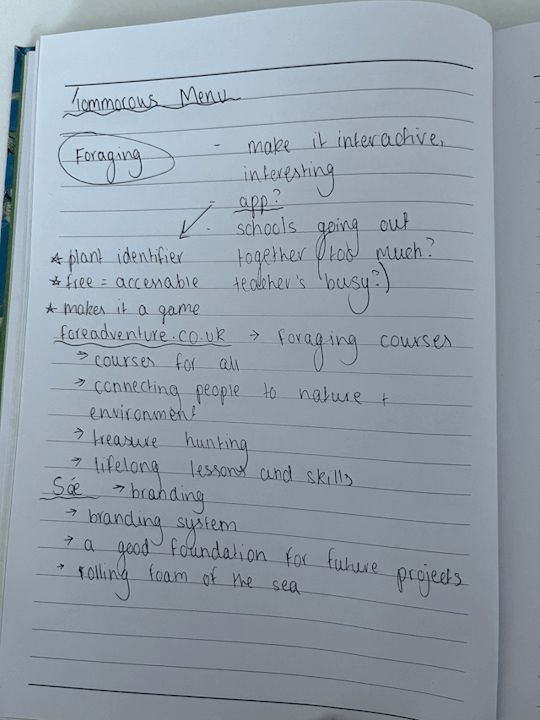 Tommorous Menu
Foraging
- make it interactive,
interesting
- app?
- schools going out
together (too much?
teacher's busy?)
* plant identifier
* free = accessable
* makes it a game
foreadventure.co.uk → foraging courses
→ courses for all
→ connecting people to nature +
environment
→ treasure hunting
→ lifelong lessons and skills
Søe → branding
→ branding system
→ a good foundation for future projects
→ rolling foam of the sea